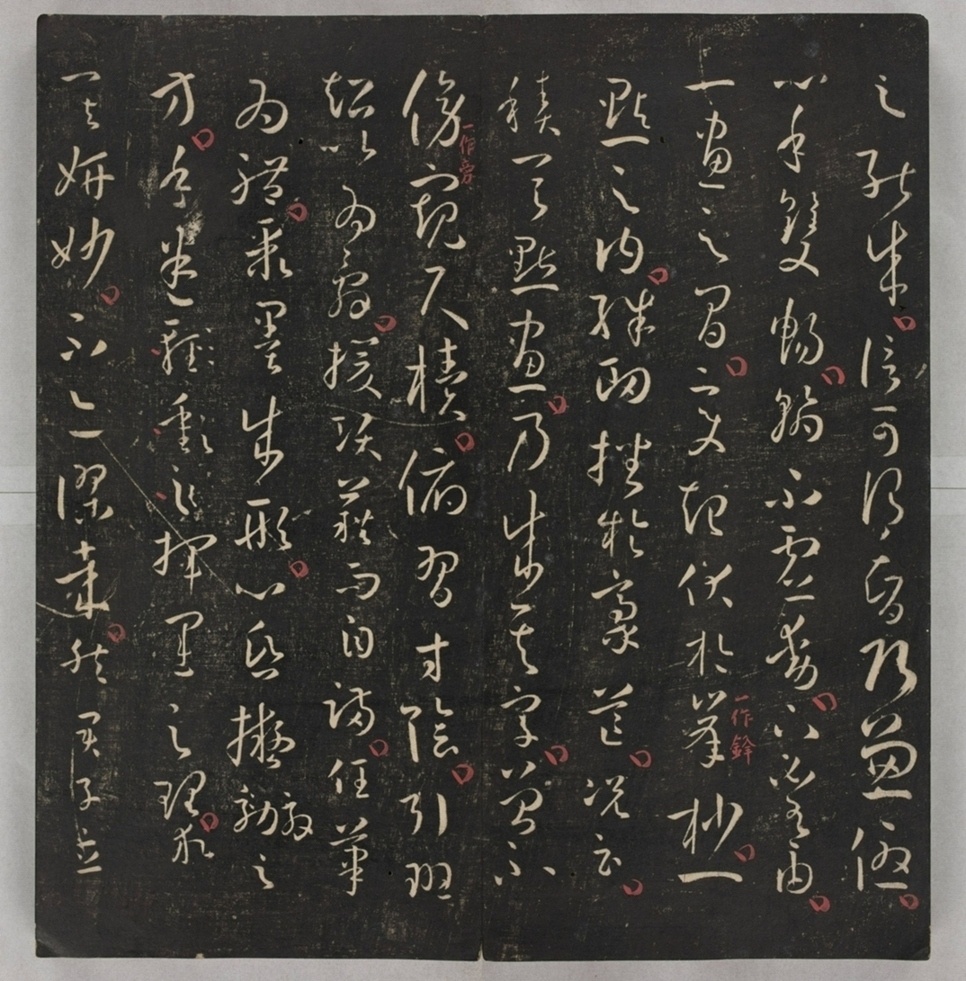 之能成信可謂智巧兼優
心手雙暢翰不虛動下必有由
一畫之間變起伏於峯杪一
一作鋒
點之內殊衄挫於豪芒況云
積其點畫乃成其字曾不
傍窺尺牘俯習寸陰引班
一作旁
超以為辭援項籍而自滿任筆
為體聚墨成形心昏擬効之
方手迷揮運之理求
其妍妙不亦謬哉然君子立